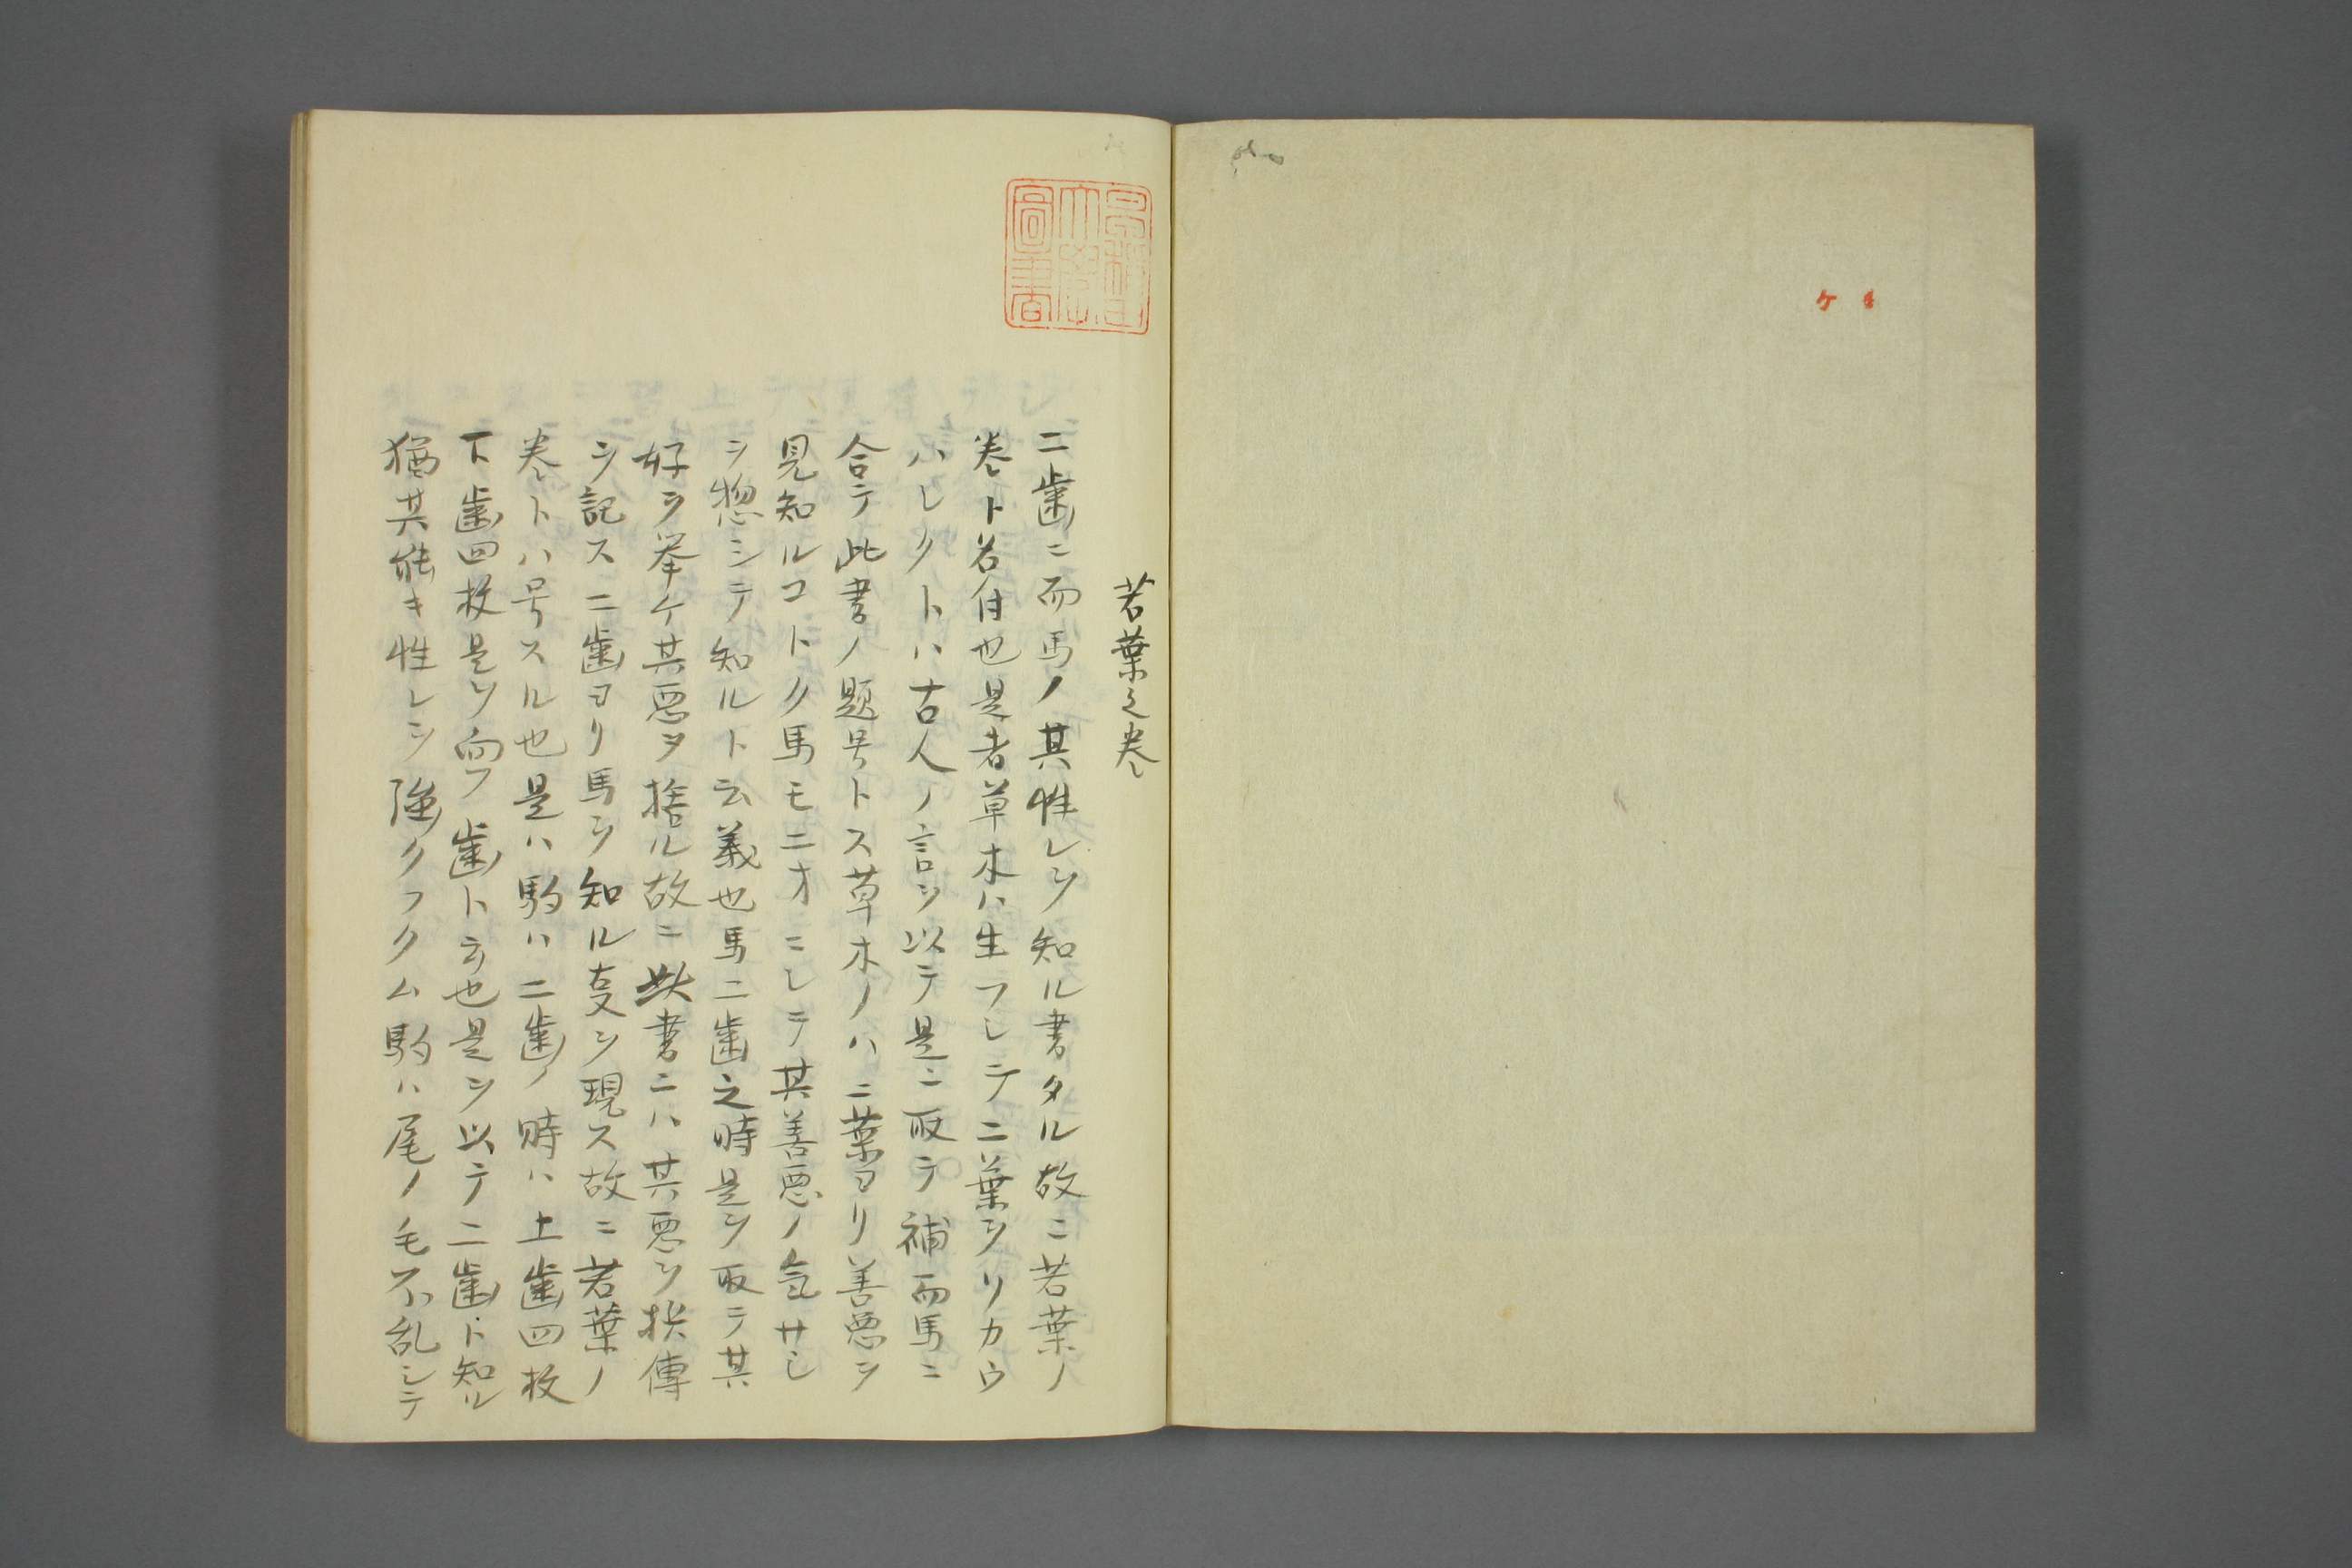 若葉之巻
二歯ニ而馬ノ其性レヲ知ル書タル故ニ若葉ノ
巻ト名付也是者草木ハ生フレテニ葉ヲリカウ
ハレクトハ古人ノ言ヲ以テ是ニ取テ補而馬ニ
合テ此書ノ題号トス草木ノハ二葉ヨリ善悪ヲ
見知ルコトク馬モ二才ニシテ其善悪ノ気サシ
ヲ惣シテ知ルト云義也馬二歯之時是ヲ取テ其
好ヲ挙ケ其悪ヲ捨ル故ニ此書ニハ其悪ヲ択傳
ヲ記ス二歯ヨリ馬ヲ知ル叓ヲ現ス故ニ若葉ノ
巻トハ号スル也是ハ駒ハ二歯ノ時ハ上歯四枚
下歯四枚是ヲ向フ歯ト云也是ヲ以テ二歯ト知ル
猶其能キ性レヲ強クフクム駒ハ尾ノ毛不乱シテ
ケ